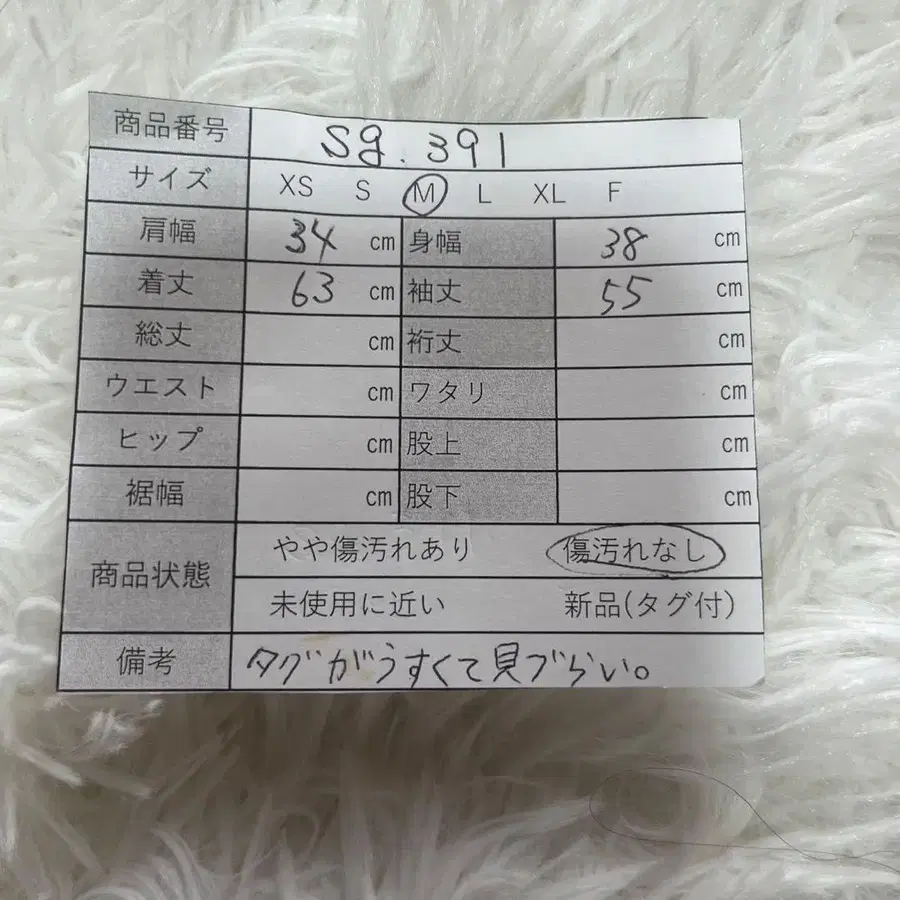 商品番号 sg.391
サイズ XS S M L XL F
肩幅 34 cm 身幅 38 cm
着丈 63 cm 袖丈 55 cm
総丈 cm 裄丈 cm
ウエスト cm ワタリ cm
ヒップ cm 股上 cm
裾幅 cm 股下 cm
商品状態 やや傷汚れあり 傷汚れなし
未使用に近い 新品(タグ付)
備考 タグがうすくて見づらい。